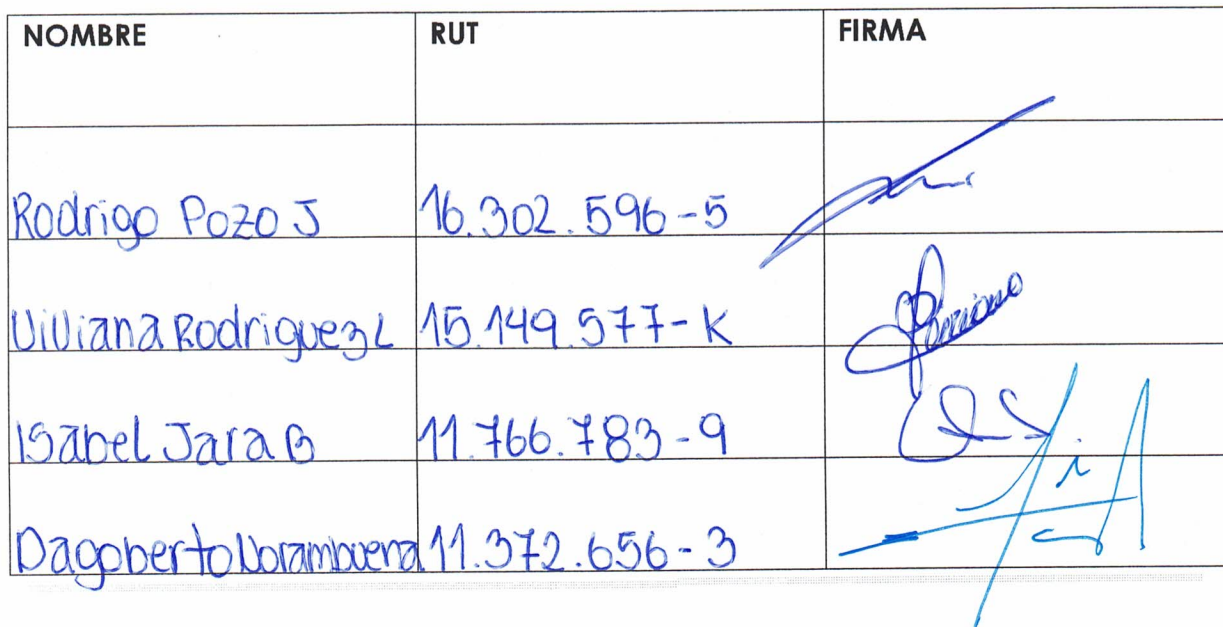 NOMBRE RUT FIRMA
Rodrigo Pozo J 16.302.596-5
Viviana Rodriguez L 15.149.577-K
Isabel Jara B 11.766.783-9
Dagoberto Norambuena 11.372.656-3